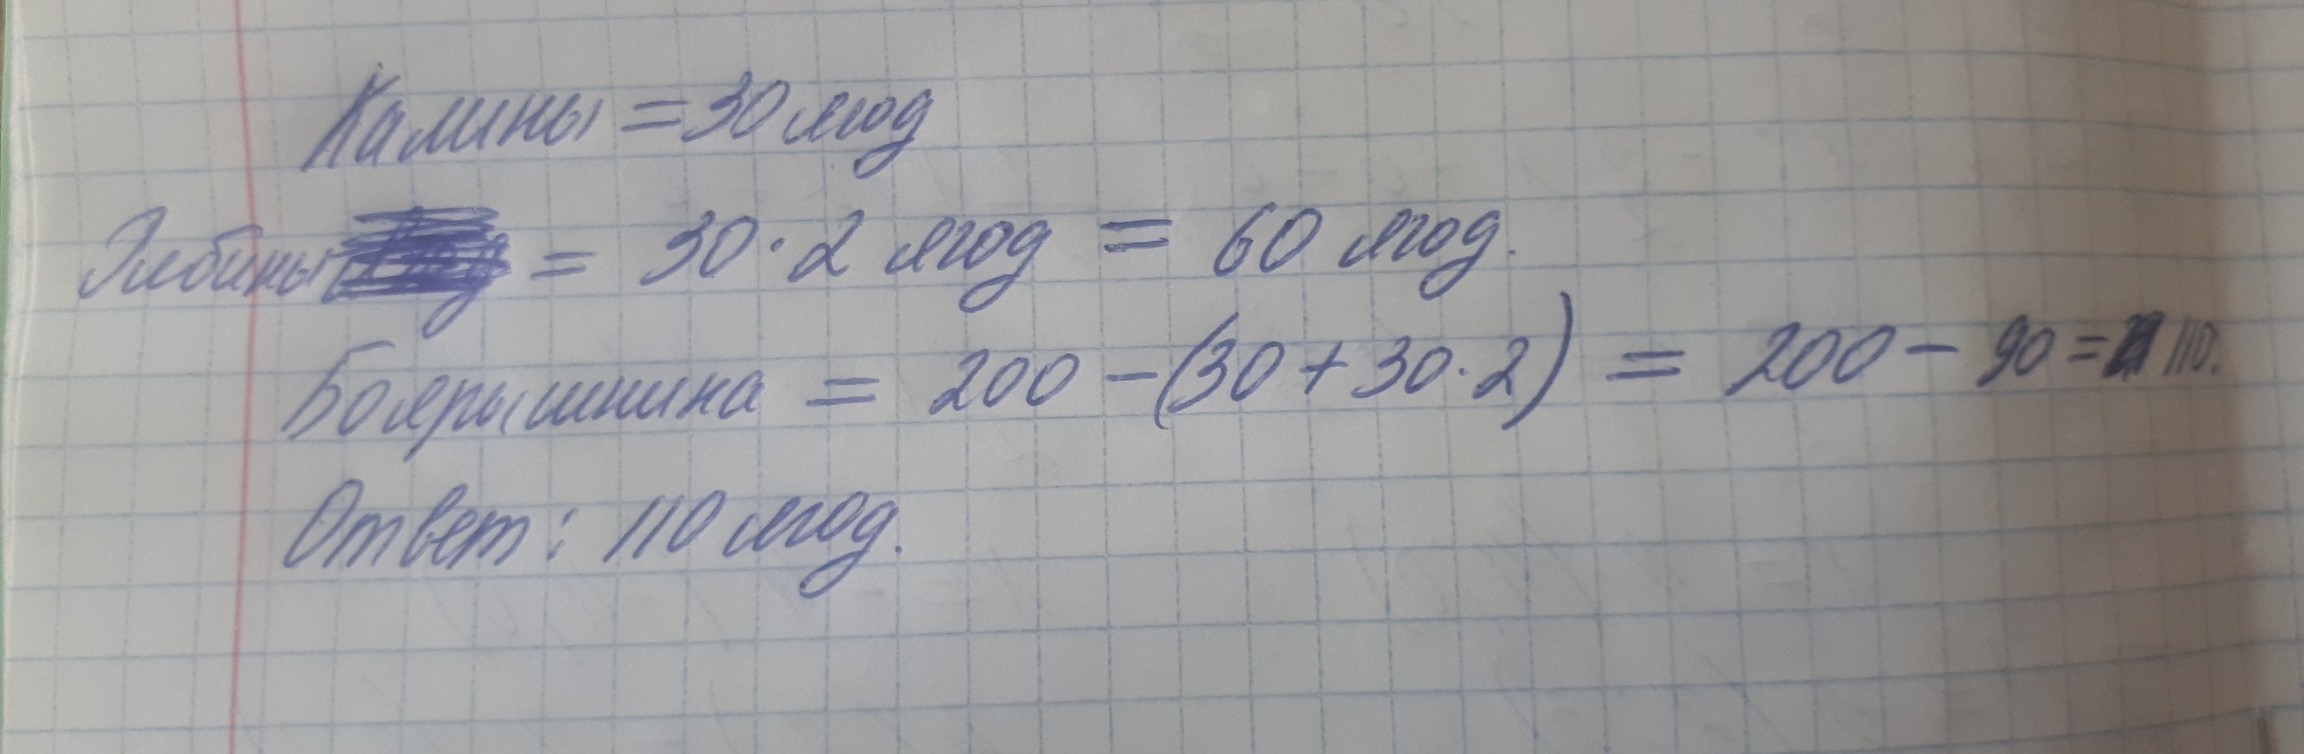 Калины = 30 ягод
= 30 · 2 ягод = 60 ягод.
Боярышника = 200 - (30 + 30 · 2) = 200 - 90 = 110.
Ответ: 110 ягод.